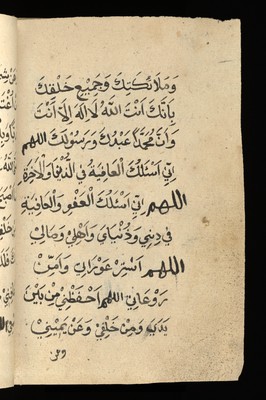 وَمَلَائِكَتِكَ وَجَمِيْعِ خَلْقِكَ
بِاَنَّكَ اَنْتَ اللّٰهُ لَا اِلٰهَ اِلَّا اَنْتَ
وَاَنَّ مُحَمَّدًا عَبْدُكَ وَرَسُوْلُكَ اللهم
اِنِّي اَسْئَلُكَ الْعَافِيَةَ فِي الدُّنْيَا وَالْاٰخِرَةِ
اللهم اِنِّي اَسْئَلُكَ الْعَفْوَ وَالْعَافِيَةَ
فِي دِيْنِي وَدُنْيَايَ وَاَهْلِيْ وَمَالِيْ
اللهم اسْتُرْ عَوْرَاتِيْ وَاٰمِنْ
رَوْعَاتِيْ اللهم احْفَظْنِيْ مِنْ بَيْنِ
يَدَيَّ وَمِنْ خَلْفِيْ وَعَنْ يَمِيْنِيْ
وعن